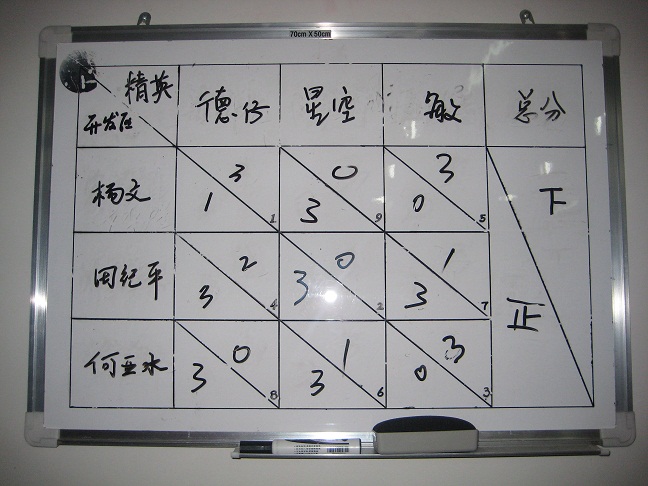 70cm X 50cm
精英 德仔 星空 敏 总分
开发区
杨文 3 1 1 0 3 9 3 0 5 下
周纪平 2 3 4 0 3 2 1 3 7 正
何亚水 0 3 8 1 3 6 3 0 3